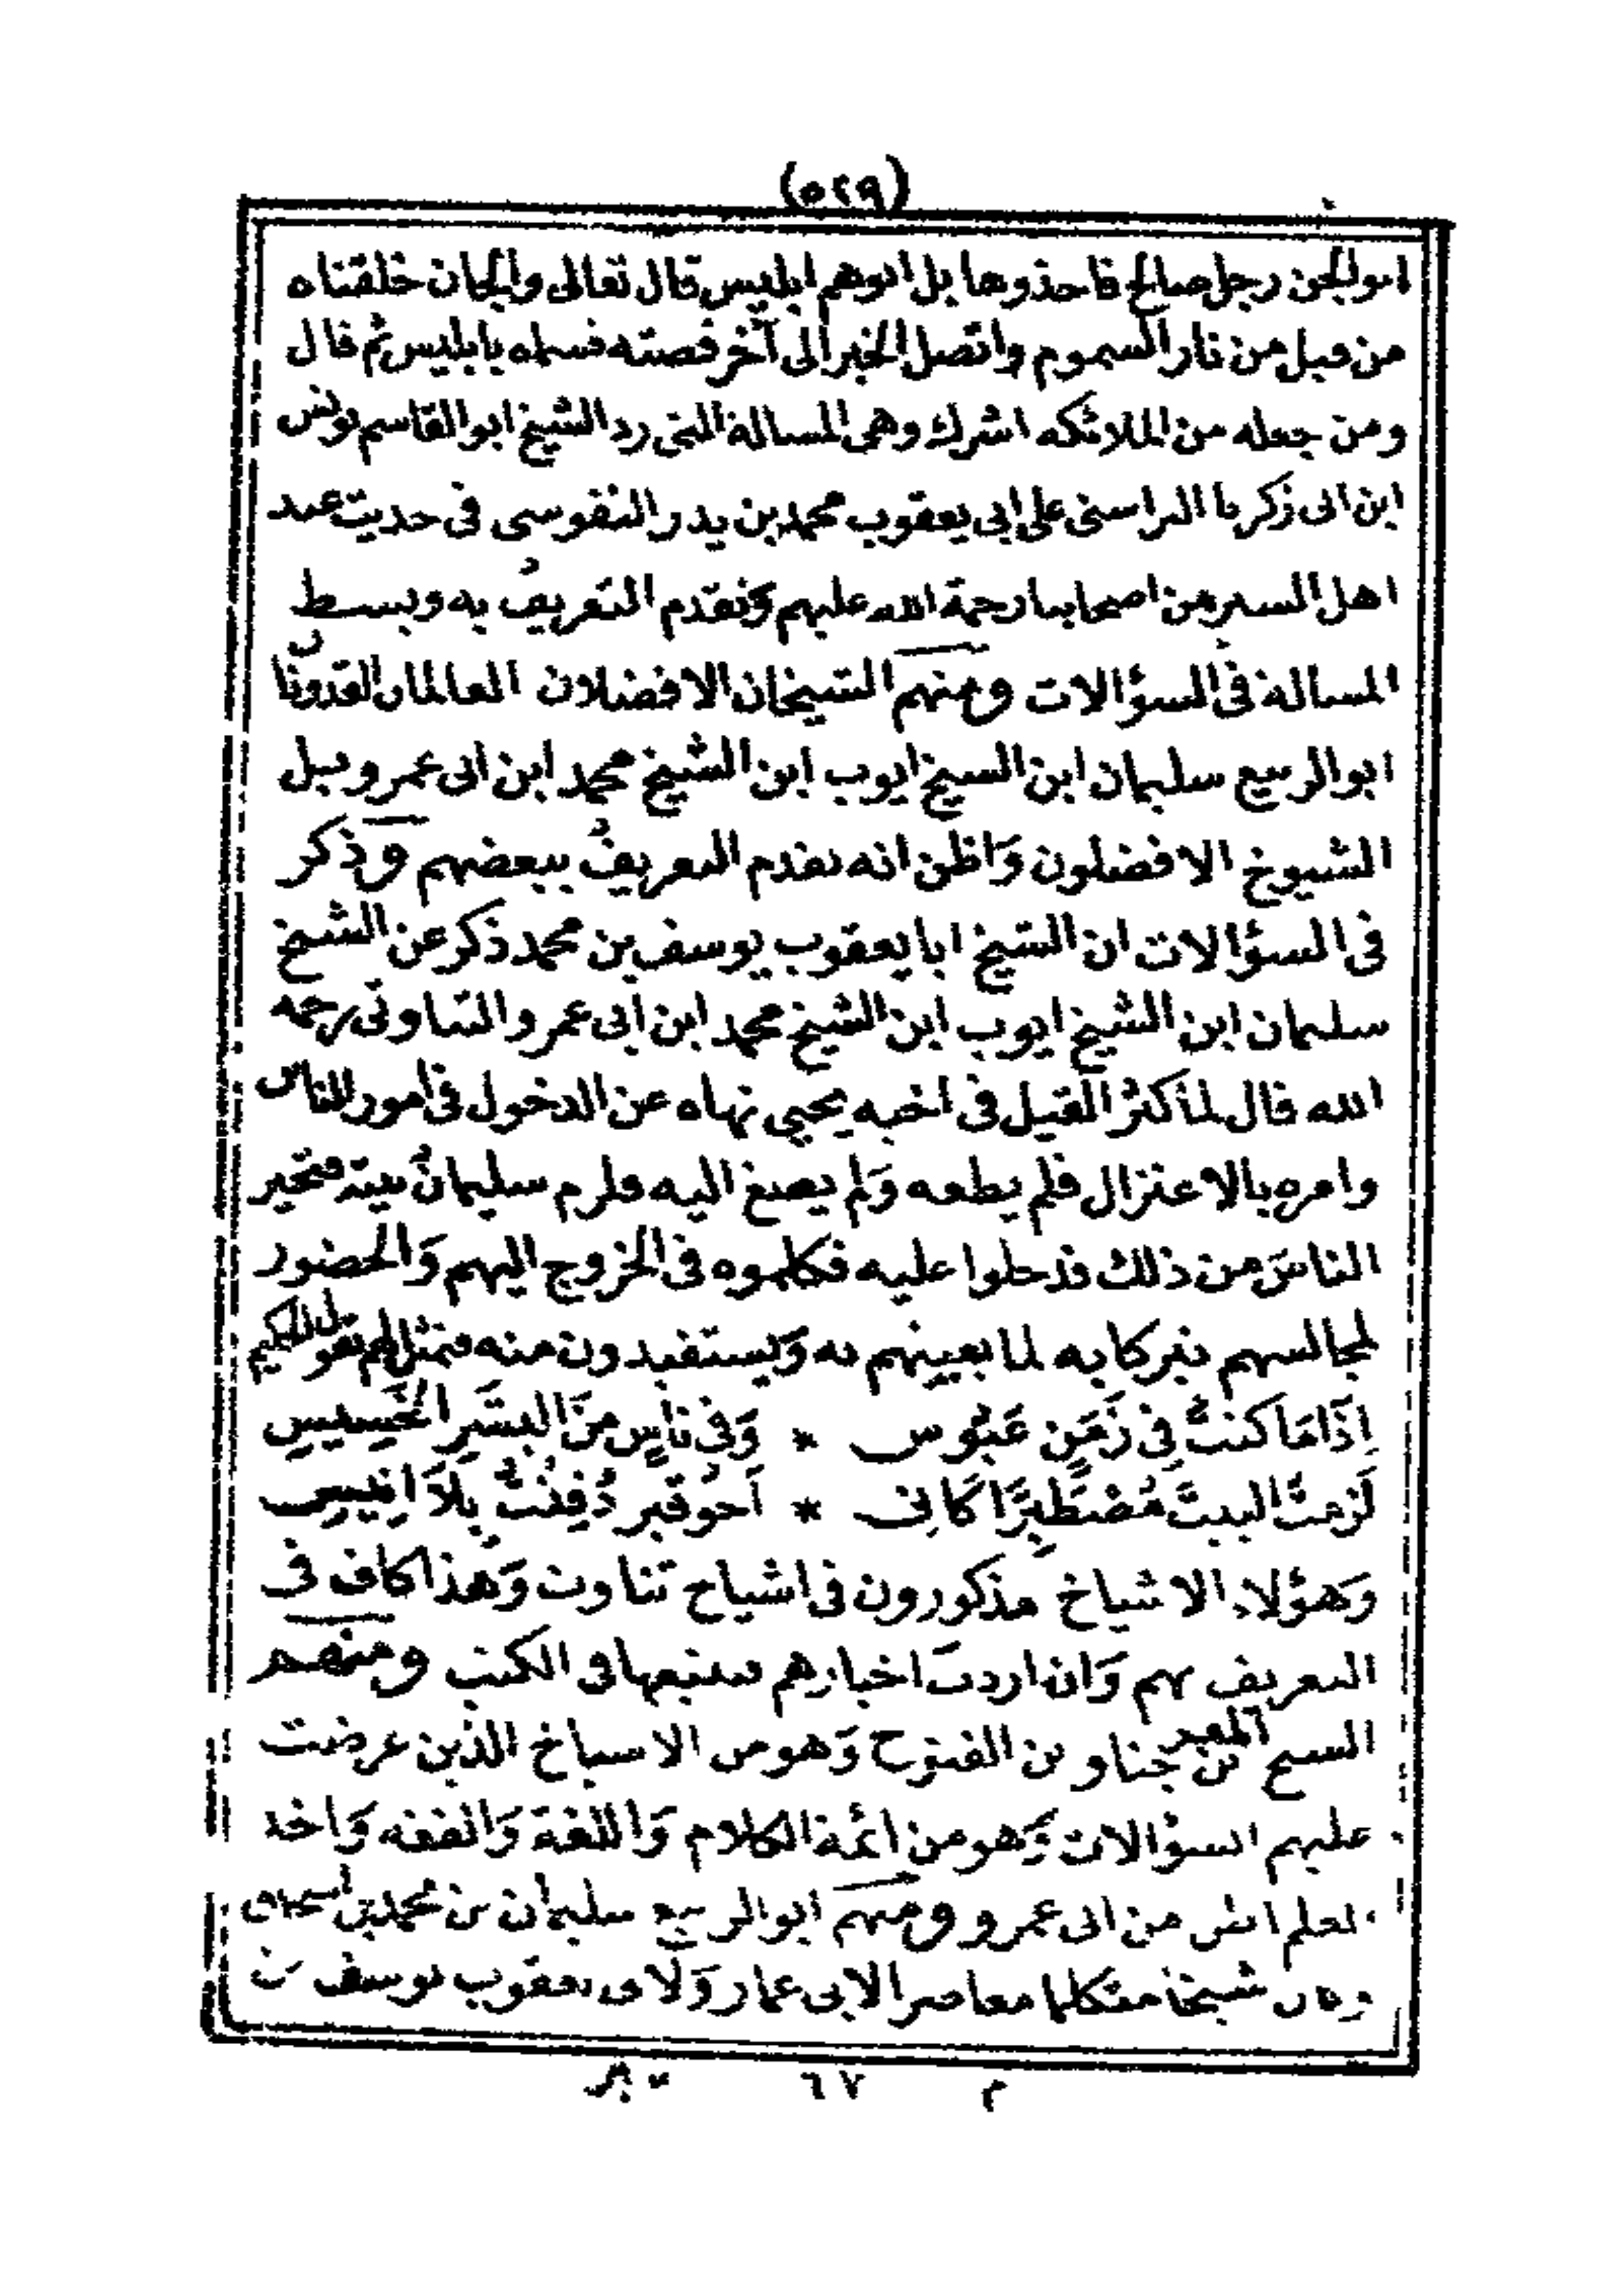 (٥٢٩)
ابو الجن رجل صالح فاحذروها بل ابوهم ابليس قال تعالى والجان خلقناه
من قبل من نار السموم واتصل الخبر الى آخر قصته فسماه بابليس ثم قال
ومن جعله من الملائكه اشرك وهى المسالة التى رد الشيخ ابو القاسم يونس
ابن ابى زكريا على ابى يعقوب محمد بن يدر النفوسى فى حديث عند
اهل السير من اصحابنا رحمة الله عليهم وتقدم التعريف به وبسط
المسالة فى السؤالات ومنهم الشيخان الافضلان العالمان القدوتان
ابو الربيع سليمان ابن الشيخ ايوب ابن الشيخ محمد ابن ابى عمرو وبل
الشيوخ الافضلون وَاظن انه تقدم التعريفُ ببعضهم وذكر
فى السؤالات ان الشيخ ابا يعقوب يوسف بن محمد ذكر عن الشيخ
سليمان ابن الشيخ ايوب ابن الشيخ محمد ابن ابى عمرو التناوتى رحمه
الله قال لما كثر القيل فى اخيه يحيى نهاه عن الدخول فى امور الناس
وامره بالاعتزال فلم يطعه وَلم يصغ اليه فلزم سليمانُ بيته فتحير
الناسَ من ذلك فدخلوا عليه فكلموه فى الخروج اليهم وَالحضور
لمجالسهم تبركا به لما يعينهم به وَيستفيدون منه فتمثل لهم بقول الحكيم
اِذَا مَا كنتُ فِى زَمَنٍ عَبُوس * وَفى ناسٍ منَ البشَرِ الخَسِيسِ
لَزمتُ البيتَ مُضْطَبِرًا كَانى * اَخُو قبرٍ دُفِنْتُ بِلَا اَنِيس
وَهؤلاء الاشياخ مذكورون فى اشياخ تناوت وَهذا كاف فى
التعريف بهم وَان اردتَ اخبارهم فتتبعها فى الكتب ومنهم
الشيخ المعز بن جناو بن الفتوح وَهو من الاشياخ الذين عرضت
عليهم السؤالات وَهو من ائمة الكلام وَاللغة وَالفقه وَاخذ
العلم عن ابى عمرو ومنهم ابو الربيع سليمان بن محمد بن اسحاق
وكان شيخا متكلما معاصرا لابى عمار وَلابى يعقوب يوسف بن
م ٦٧ - بر